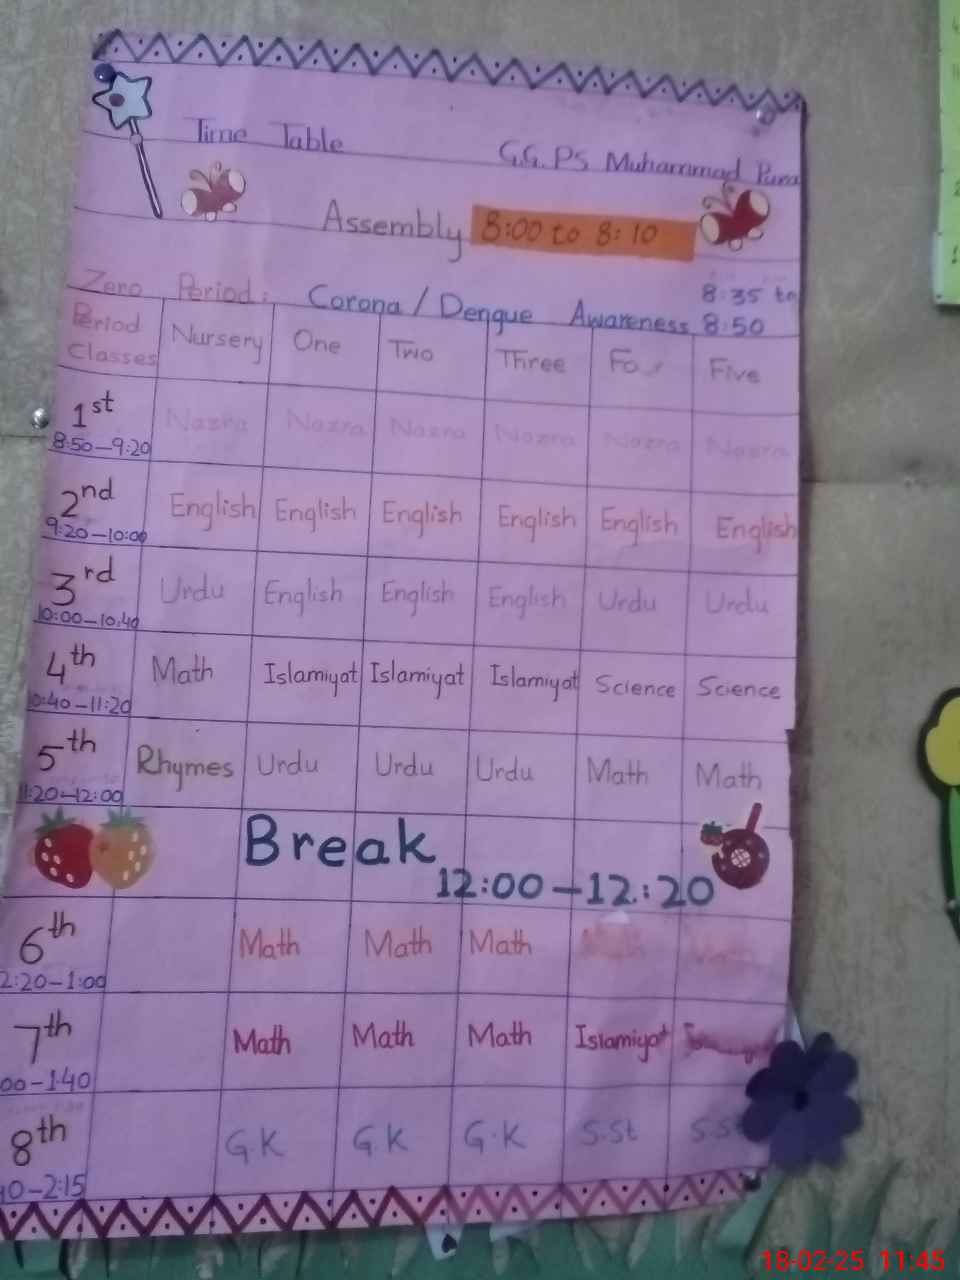 Time Table G.G.P.S Muhammad Pura
Assembly 8:00 to 8:10
Zero Period: Corona / Dengue Awareness 8:35 to 8:50
Period Classes Nursery One Two Three Four Five
1st 8:50-9:20 Nazra Nazra Nazra Nazra Nazra Nazra
2nd 9:20-10:00 English English English English English English
3rd 10:00-10:40 Urdu English English English Urdu Urdu
4th 10:40-11:20 Math Islamiyat Islamiyat Islamiyat Science Science
5th 11:20-12:00 Rhymes Urdu Urdu Urdu Math Math
Break 12:00-12:20
6th 2:20-1:00 Math Math Math
7th 00-1:40 Math Math Math Islamiyat
8th 40-2:15 G.K G.K G.K S.St S.St
18-02-25 11:45